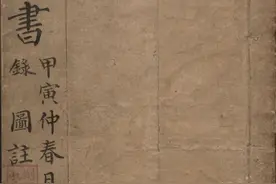 甲寅仲春日
書
錄圖註